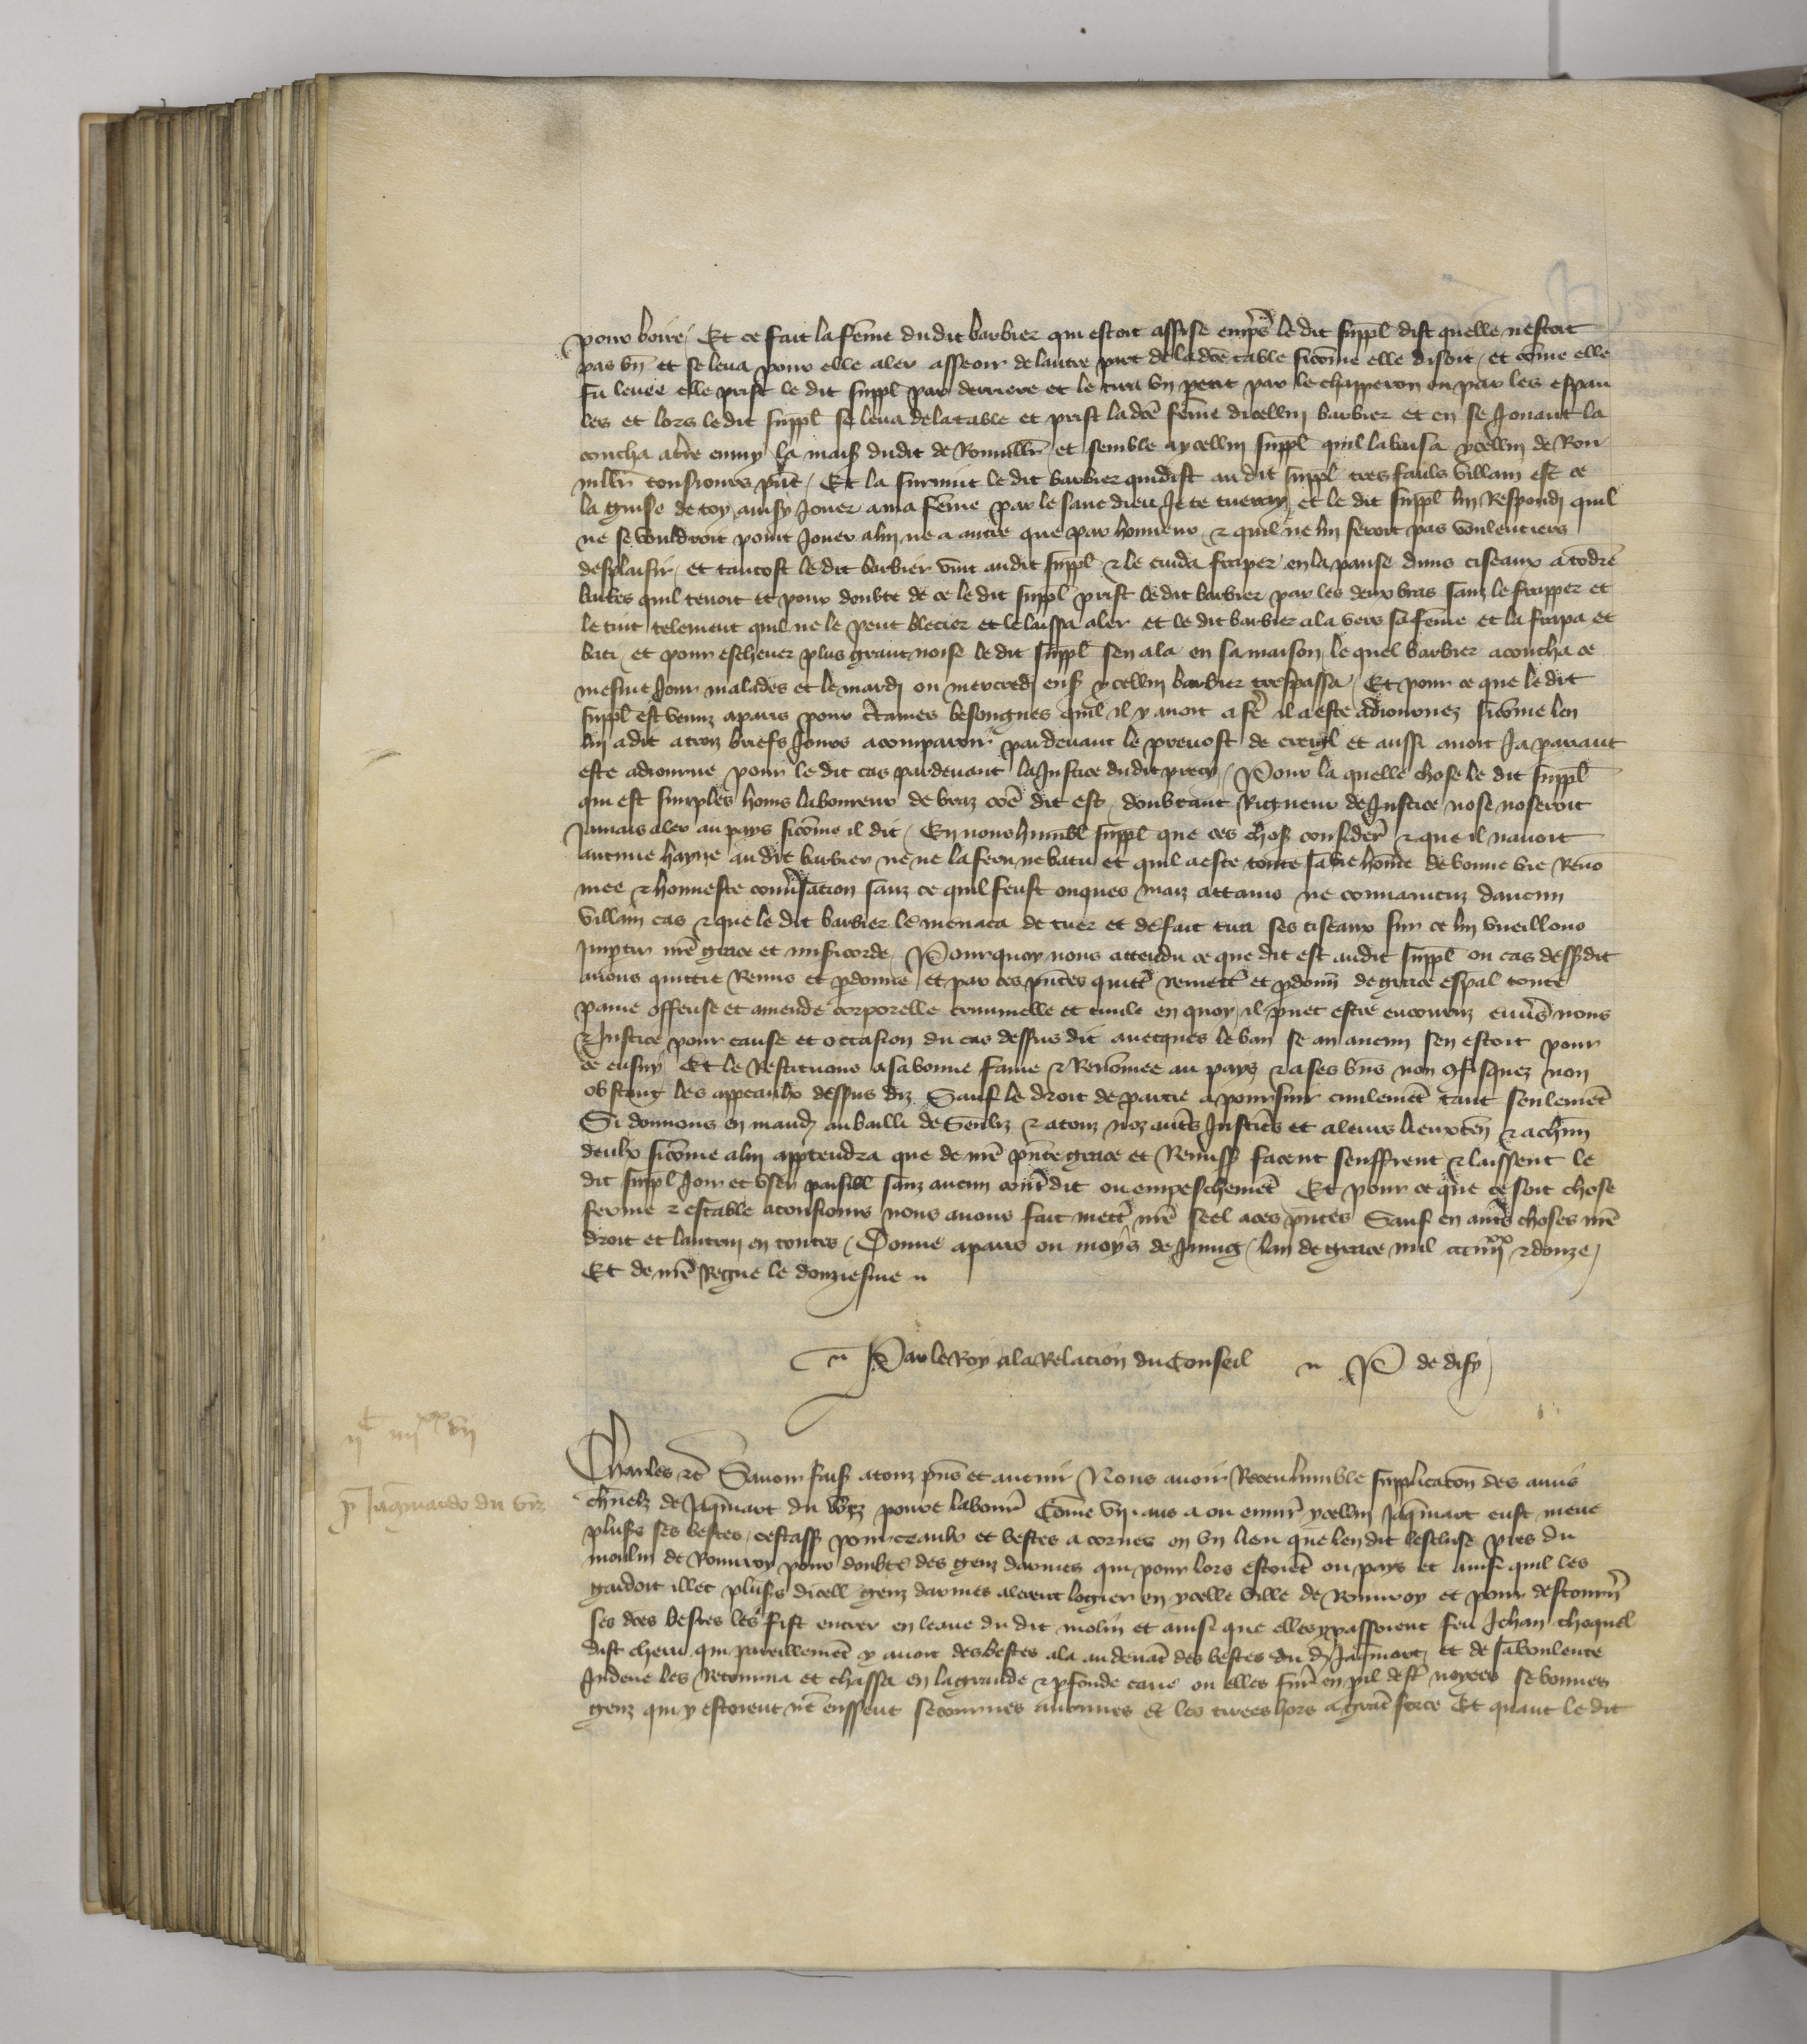 pour boire / Et ce fait la fem̄e dudit barbier qui estoit assise emp̃s le dit suppl̄ dist quelle nestoit
pas bn̄ et se leua pour elle aler asseoir de lautre part de ladc̄e table sicōme elle disoit / et cōme elle
fu leuee elle prist le dit suppl̄ par derriere et le tira vn petit par le chapperon ou par les espau
les et lors le dit suppl̄ se leua de la table et prist ladc̄e fem̄e dicellui barbier et en se Jouant la
coucha at̄re emmy la mais̄ dudit de et semble a ycellui suppl̄ quil la baisa ycellui de Rou
tousiours pñt / Et la suruint le dit barbier qui dist au dit suppl̄ tres faulx villain est ce
la guise de toy ainsy Jouer a ma fem̄e par le sanc dieu Je te tueray et le dit suppl̄ lui Respondi quil
ne se vouldroit point Jouer a lui ne a autre que par honneur & quil ne lui feroit pas voulentiers
desplaisir / et tantost le dit barbier vint audit suppl̄ & le cuida fraper en la panse duns ciseaux a todr̄e
barbes quil tenoit et pour doubte de ce le dit suppl̄ prist le dit barbier par les deux bras sanz le frapper et
le tint telement quil ne le peut blecier et le laissa aler et le dit barbier ala vers sa fem̄e et la frapa et
bati et pour escheuer plus grant noise le dit suppl̄ sen ala en sa maison le quel barbier acoucha ce
mesme Jour malades et le mardi ou mercredi ens̄ ycellui barbier trespassa / Et pour ce que le dit
suppl̄ est venuz a paris pour c̄taines besongnes quil il y auoit a fẽ il a este adiournez sicōme len
lui a dit a troiz briefs Jours a comparoir pardeuant le preuost de creeyl et aussi auoit Ja parauant
este adiourne pour le dit cas pardeuant la Justice dudit precy / Pour la quelle chose le dit suppl̄
qui est simples homs laboureur de braz cōe dit est / doubtant Rigueur de Justice nose noseroit
Jamais aler au pays sicōme il dit / En nous humbl̄ suppl̄ que ces chos̄ consider̄ & que il nauoit
aucune hayne au dit barbier ne ne la feru ne batu et quil a este toute sa vie hom̄e de bonne vie Reno
mee & honneste conūsation sanz ce quil feust onques maiz attains ne conuaincuz daucun
villain cas & que le dit barbier le menaca de tuer et de fait tira ses ciseaux sur ce lui vueillons
Imptir nr̄e grace et mis̄icorde / Pourquoy nous attendu ce que dit est audit suppl̄ ou cas dess̄dit
auons quittie Remis et p̄donne et par ces pñtes quitt̄ remett̄ et p̄donn̄ de grace esp̄al toute
paine offense et amende corporelle criminelle et ciuile en quoy il puet estre encouruz enu̾s nous
& Justice pour cause et occasion du cas dessus dit auecques le ban se an aucun sen estoit pour
ce ensuy Et le Restituons a sa bonne fame & Renōmee au pays & a ses bn̄s non 9fisquez non
obstant les appeaulx dessus diz Sauf le droit de partie a poursuir ciuilemēt tant seulemēt
Si donnons en mand̄ au bailli de Senliz & a touz noz aut̄s Justic̄s et a leurs lieuxten̄ & a ch̄un
deulx sicōme a lui app̄tendra que de nr̄e pñte grace et Remiss̄ facent seuffrent & laissent le
dit suppl̄ Joir et vser paisibl̄ sanz aucun cont̄dit ou empeschemēt Et pour ce que ce soit chose
ferme & estable a tousiours nous auons fait mett̄ nr̄e seel a ces pñtes Sauf en aut̄s choses nr̄e
droit et lautrui en toutes / Donne a paris ou moys de Juing / lan de grace mil ccc iiijˣˣ & douze /
Et de nr̄e Regne le douziesme ~
~ Par le Roy a la Relacion du Conseil ~ P de disy
ijᶜ iiijˣˣ vij
Charles &c̄ Sauoir fais̄ a touz pñs et auenir Nous auoir Receu humble supplicatōn des amis
p Jaqmardo du viez
ch̄nelz de Jaqmart du viez poure labour̄ Cōme vij ans a ou enuir̄ ycellui Jaqmart eust mene
plus̄s ses bestes / cestass̄ pourceaulx et bestes a cornes en vn lieu que len dit lescluse pres du
moulin de Rouuroy pour doubte des genz darmes qui pour lors estoiēt ou pays et ainsi quil les
gardoit illec plus̄s dicell̄ genz darmes alerent logier en ycelle ville de Rouuroy et pour destourn̄
ses dc̄es bestes les fist entrer en leaue du dit molin et ainsi que elles ypassoient feu Jehan choquel
dist cheru qui pareillemēt y auoit des bestes ala au deuāt des bestes du d̄ Jaqmart et de sa voulente
Indeue les Retourna et chassa en la grande & p̄fonde eaue ou elles fur̄ en p̄il dest̄ noyees se bonnes
genz qui y estoient ne eussent secourues aucunes & les tirees hors a grāt force Et quant le dit